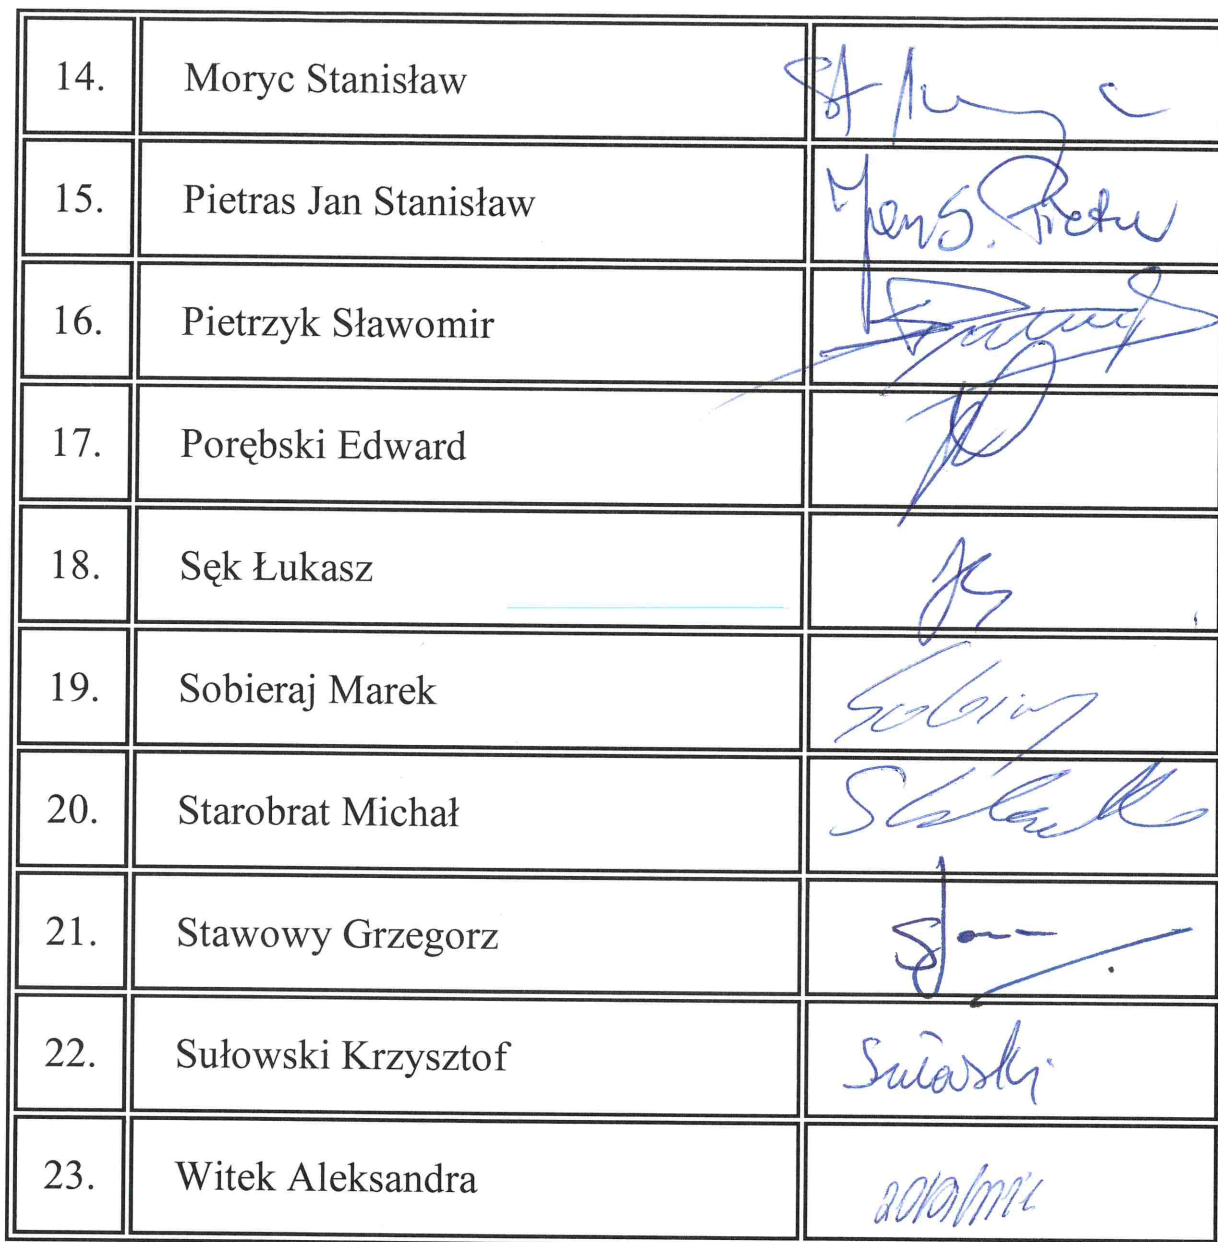 14. Moryc Stanisław
15. Pietras Jan Stanisław Jan S. Pietras
16. Pietrzyk Sławomir
17. Porębski Edward
18. Sęk Łukasz
19. Sobieraj Marek
20. Starobrat Michał
21. Stawowy Grzegorz
22. Sułowski Krzysztof Sułowski
23. Witek Aleksandra